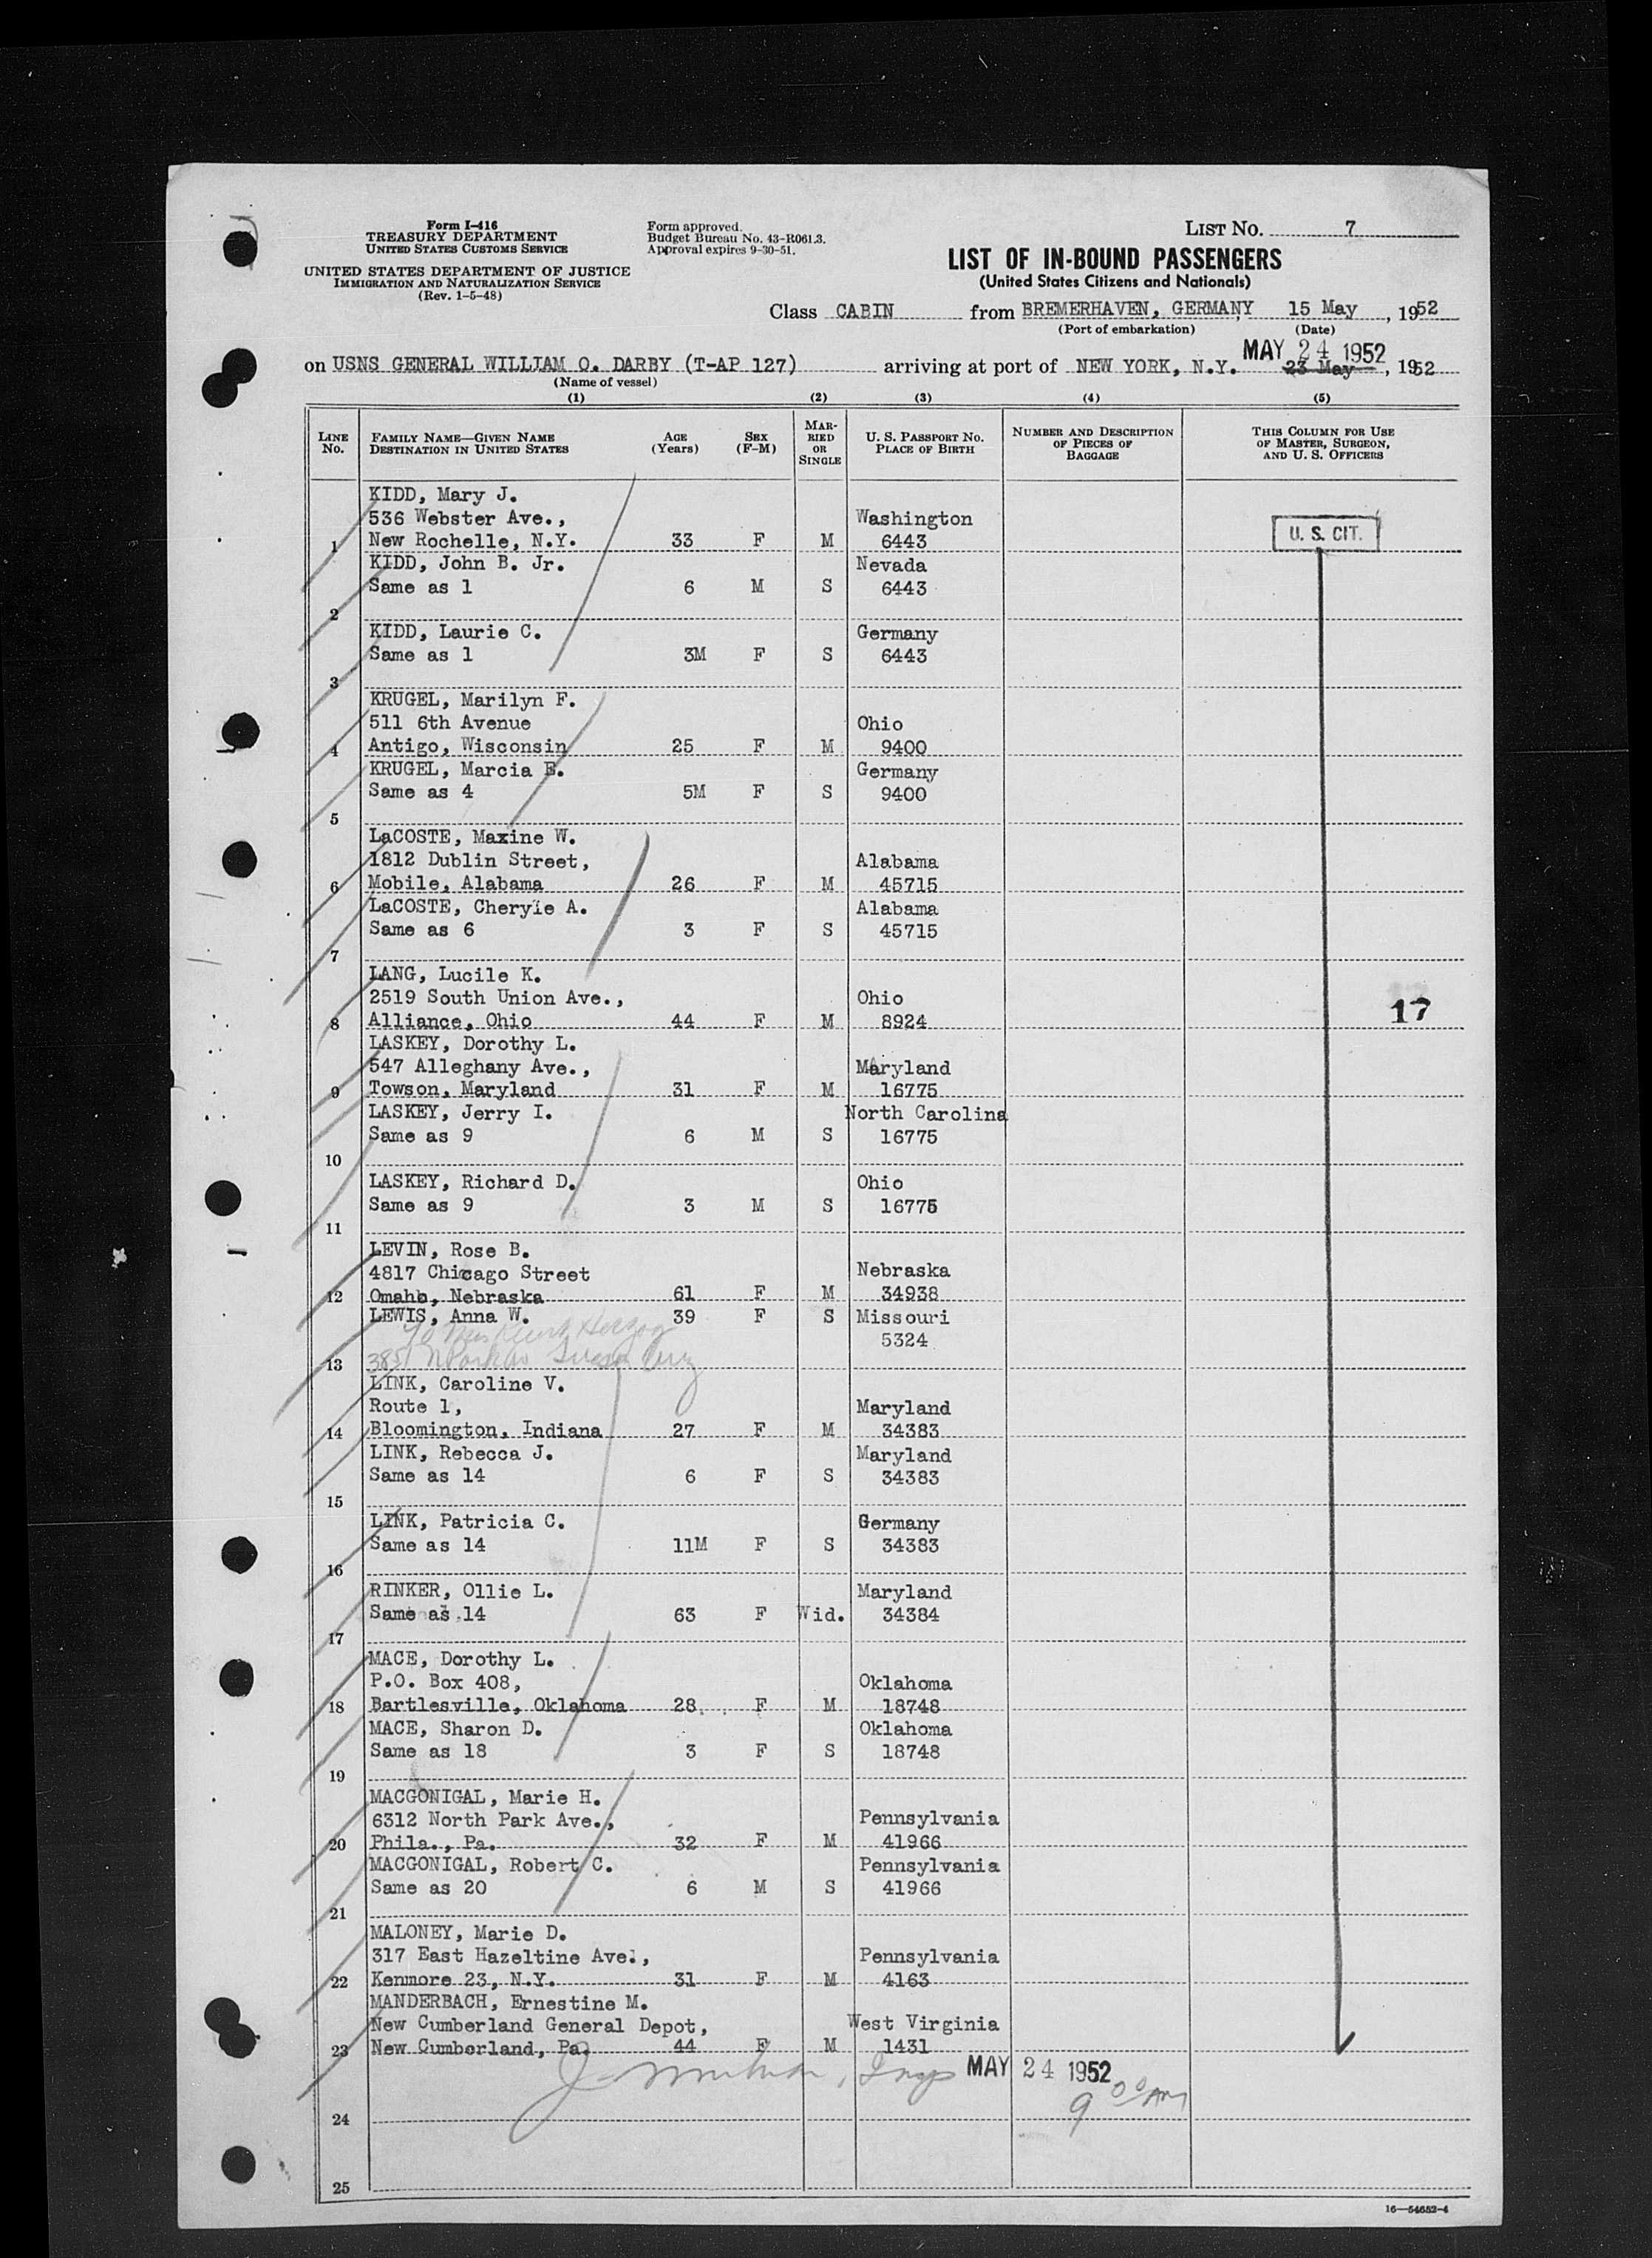 Form I-416
TREASURY DEPARTMENT
UNITED STATES CUSTOMS SERVICE
UNITED STATES DEPARTMENT OF JUSTICE
IMMIGRATION AND NATURALIZATION SERVICE
(Rev. 1-5-48)
Form approved.
Budget Bureau No. 43-R061.3.
Approval expires 9-30-51.
LIST NO. 7
LIST OF IN-BOUND PASSENGERS
(United States Citizens and Nationals)
Class CABIN from BREMERHAVEN, GERMANY, 15 May, 1952
(Port of embarkation) (Date)
MAY 24 1952
on USNS GENERAL WILLIAM O. DARBY (T-AP 127) arriving at port of NEW YORK, N.Y. 23 May, 1952
(Name of vessel)
(1) (2) (3) (4) (5)
LINE No. FAMILY NAME—GIVEN NAME DESTINATION IN UNITED STATES AGE (Years) SEX (F-M) MARRIED OR SINGLE U. S. PASSPORT NO. PLACE OF BIRTH NUMBER AND DESCRIPTION OF PIECES OF BAGGAGE THIS COLUMN FOR USE OF MASTER, SURGEON, AND U. S. OFFICERS
KIDD, Mary J.
536 Webster Ave., Washington
1 New Rochelle, N.Y. 33 F M 6443 U. S. CIT.
KIDD, John B. Jr. Nevada
Same as 1 6 M S 6443
2
KIDD, Laurie C. Germany
Same as 1 3M F S 6443
3
KRUGEL, Marilyn F.
511 6th Avenue Ohio
4 Antigo, Wisconsin 25 F M 9400
KRUGEL, Marcia E. Germany
Same as 4 5M F S 9400
5
LaCOSTE, Maxine W.
1812 Dublin Street, Alabama
6 Mobile, Alabama 26 F M 45715
LaCOSTE, Cheryie A. Alabama
Same as 6 3 F S 45715
7
LANG, Lucile K.
2519 South Union Ave., Ohio 17
8 Alliance, Ohio 44 F M 8924
LASKEY, Dorothy L.
547 Alleghany Ave., Maryland
9 Towson, Maryland 31 F M 16775
LASKEY, Jerry I. North Carolina
Same as 9 6 M S 16775
10
LASKEY, Richard D. Ohio
Same as 9 3 M S 16775
11
LEVIN, Rose B.
4817 Chicago Street Nebraska
12 Omaha, Nebraska 61 F M 34938
LEWIS, Anna W. 39 F S Missouri
5324
13
LINK, Caroline V.
Route 1, Maryland
14 Bloomington, Indiana 27 F M 34383
LINK, Rebecca J. Maryland
Same as 14 6 F S 34383
15
LINK, Patricia C. Germany
Same as 14 11M F S 34383
16
RINKER, Ollie L. Maryland
Same as 14 63 F Wid. 34384
17
MACE, Dorothy L.
P.O. Box 408, Oklahoma
18 Bartlesville, Oklahoma 28 F M 18748
MACE, Sharon D. Oklahoma
Same as 18 3 F S 18748
19
MACGONIGAL, Marie H.
6312 North Park Ave., Pennsylvania
20 Phila., Pa. 32 F M 41966
MACGONIGAL, Robert C. Pennsylvania
Same as 20 6 M S 41966
21
MALONEY, Marie D.
317 East Hazeltine Ave., Pennsylvania
22 Kenmore 23, N.Y. 31 F M 4163
MANDERBACH, Ernestine M.
New Cumberland General Depot, West Virginia
23 New Cumberland, Pa. 44 F M 1431
MAY 24 1952
9 00 AM
24
25
16—54652-4